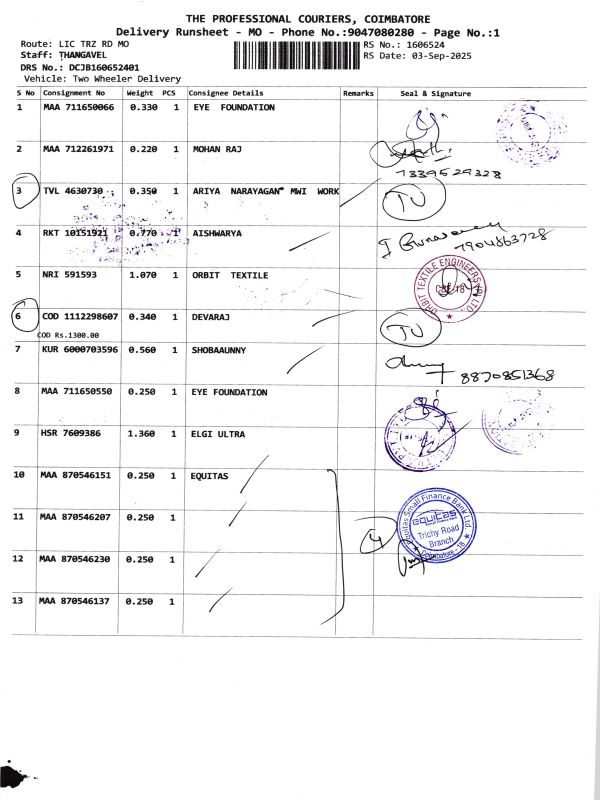 THE PROFESSIONAL COURIERS, COIMBATORE
Delivery Runsheet - MO - Phone No.:9047080280 - Page No.:1
Route: LIC TRZ RD MO
RS No.: 1606524
Staff: THANGAVEL
RS Date: 03-Sep-2025
DRS No.: DCJB160652401
Vehicle: Two Wheeler Delivery
S No Consignment No Weight PCS Consignee Details Remarks Seal & Signature
1 MAA 711650066 0.330 1 EYE FOUNDATION
2 MAA 712261971 0.220 1 MOHAN RAJ
7339529328
3 TVL 4630730 0.350 1 ARIYA NARAYAGAN MWI WORK
4 RKT 10151921 0.770 1 AISHWARYA
7904863728
5 NRI 591593 1.070 1 ORBIT TEXTILE
ORBIT TEXTILE ENGINEERS
6 COD 1112298607 0.340 1 DEVARAJ
COD Rs.1300.00
7 KUR 6000703596 0.560 1 SHOBAAUNNY
8870851368
8 MAA 711650550 0.250 1 EYE FOUNDATION
9 HSR 7609386 1.360 1 ELGI ULTRA
10 MAA 870546151 0.250 1 EQUITAS
11 MAA 870546207 0.250 1
Equitas Small Finance Bank Ltd.
equitas
Trichy Road
Branch
Coimbatore - 18
4
12 MAA 870546230 0.250 1
13 MAA 870546137 0.250 1